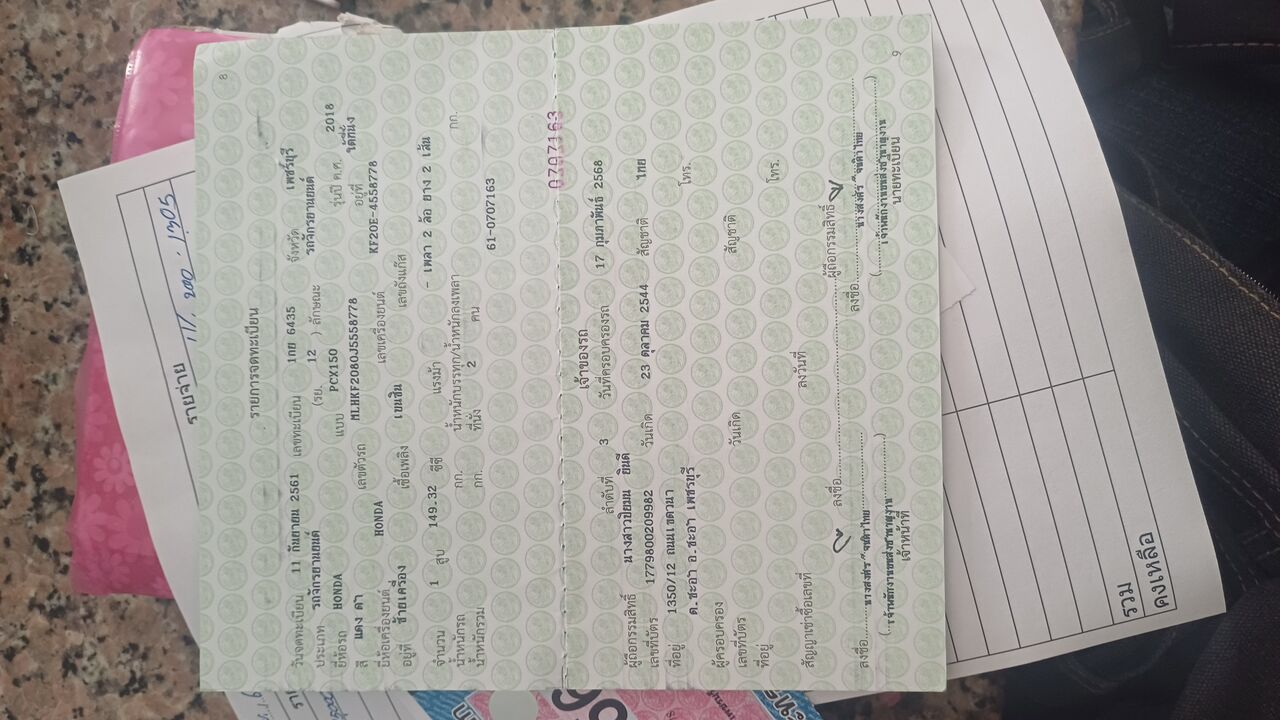 8
รายการจดทะเบียน
วันจดทะเบียน 11 กันยายน 2561 เลขทะเบียน 1กย 6435 จังหวัด เพชรบุรี
ประเภท รถจักรยานยนต์ (รย. 12 ) ลักษณะ รถจักรยานยนต์
ยี่ห้อรถ HONDA แบบ PCX150 รุ่นปี ค.ศ. 2018
สี แดง ดำ เลขตัวรถ MLHKF2080J5558778 อยู่ที่ ใต้ที่นั่ง
ยี่ห้อเครื่องยนต์ HONDA เลขเครื่องยนต์ KF20E-4558778
อยู่ที่ ซ้ายเครื่อง เชื้อเพลิง เบนซิน เลขถังแก๊ส
จำนวน 1 สูบ 149.32 ซีซี แรงม้า - เพลา 2 ล้อ ยาง 2 เส้น
น้ำหนักรถ กก. น้ำหนักบรรทุก/น้ำหนักลงเพลา กก.
น้ำหนักรวม กก. ที่นั่ง 2 คน
61-0707163
0707163
เจ้าของรถ
ลำดับที่ 3 วันที่ครอบครองรถ 17 กุมภาพันธ์ 2568
ผู้ถือกรรมสิทธิ์ นางสาวปิยมน ยินดี
เลขที่บัตร 1779800209982 วันเกิด 23 ตุลาคม 2544 สัญชาติ ไทย
ที่อยู่ 1350/12 ถนนเขตวนา โทร.
ต.ชะอำ อ.ชะอำ เพชรบุรี
ผู้ครอบครอง
เลขที่บัตร วันเกิด สัญชาติ
ที่อยู่ โทร.
สัญญาเช่าซื้อเลขที่ ลงวันที่
ลงชื่อ ผู้ถือกรรมสิทธิ์
ลงชื่อ ลงชื่อ
เจ้าหน้าที่ นายทะเบียน
9
รายจ่าย
รวม
คงเหลือ